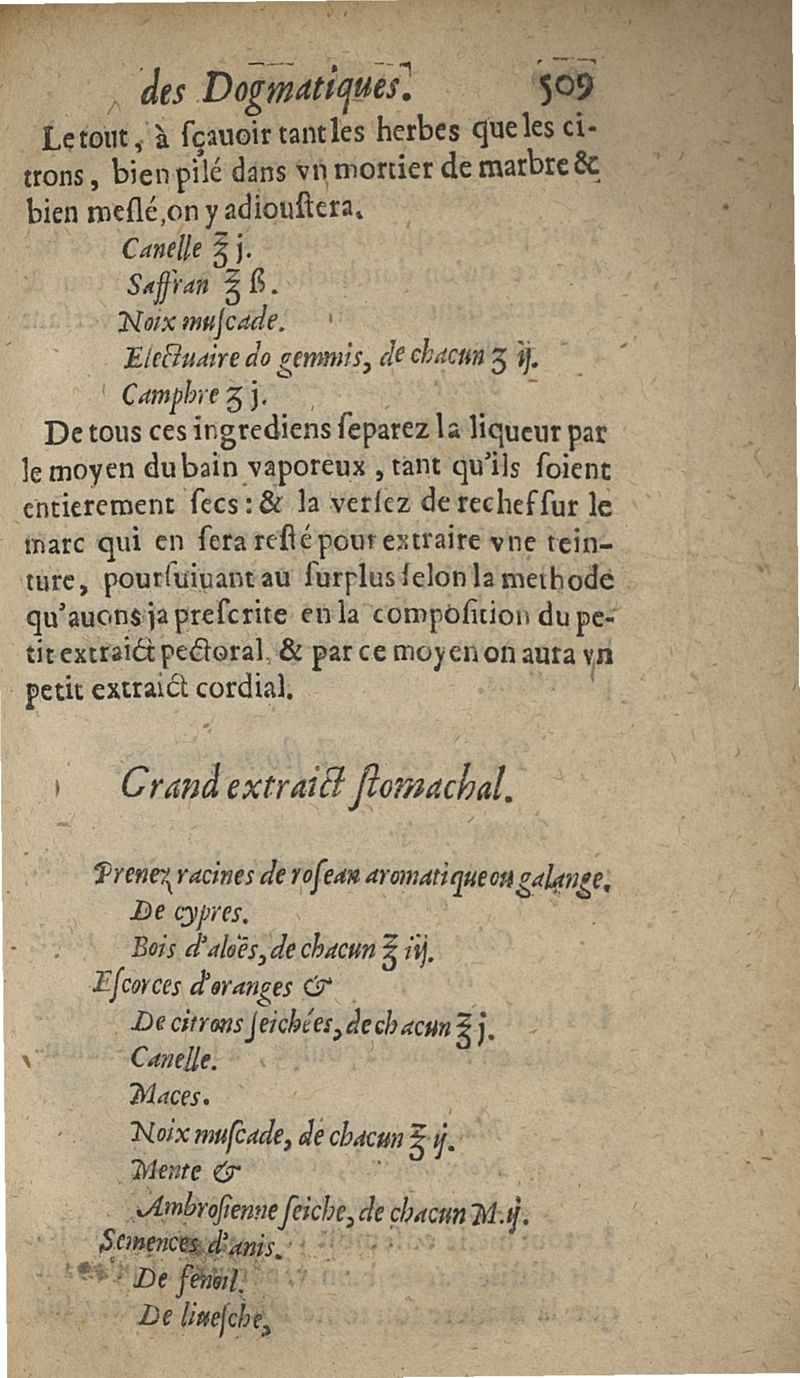 des Dogmatiques. 509
Le tout, à sçauoir tant les herbes que les ci-
trons, bien pilé dans vn mortier de marbre &
bien meslé, on y adioustera.
Canelle ℥ j.
Saffran ℥ ß.
Noix muscade.
Electuaire do gemmis, de chacun ʒ ij.
Camphre ʒ j.
De tous ces ingrediens separez la liqueur par
le moyen du bain vaporeux, tant qu'ils soient
entierement secs: & la versez de rechef sur le
marc qui en sera resté pour extraire vne tein-
ture, poursuiuant au surplus selon la methode
qu'auons ja prescrite en la composition du pe-
tit extraict pectoral, & par ce moyen on aura vn
petit extraict cordial.
Grand extraict stomachal.
Prenez racines de rosean aromatique ou galange.
De cypres.
Bois d'aloës, de chacun ℥ iij.
Escorces d'oranges &
De citrons seichées, de chacun ℥ j.
Canelle.
Maces.
Noix muscade, de chacun ℥ ij.
Mente &
Ambrosienne seiche, de chacun M. ij.
Semences d'anis.
De fenoil.
De liuesche,